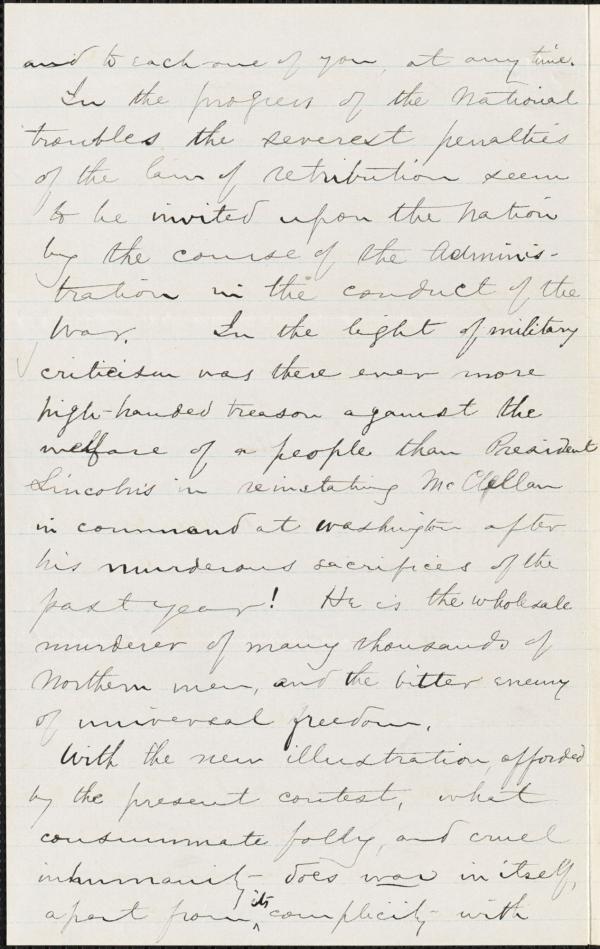 and to each one of you, at any time.
In the progress of the National
troubles the severest penalties
of the law of retribution seem
to be invited upon the nation
by the course of the Adminis-
tration in the conduct of the
War. In the light of military
criticism was there ever more
high-handed treason against the
welfare of a people than President
Lincoln's in reinstating McClellan
in command at Washington after
his murderous sacrifices of the
past year! He is the wholesale
murderer of many thousands of
Northern men, and the bitter enemy
of universal freedom.
With the new illustration, afforded
by the present contest, what
consummate folly, and cruel
inhumanity - does war in itself,
apart from its complicity - with